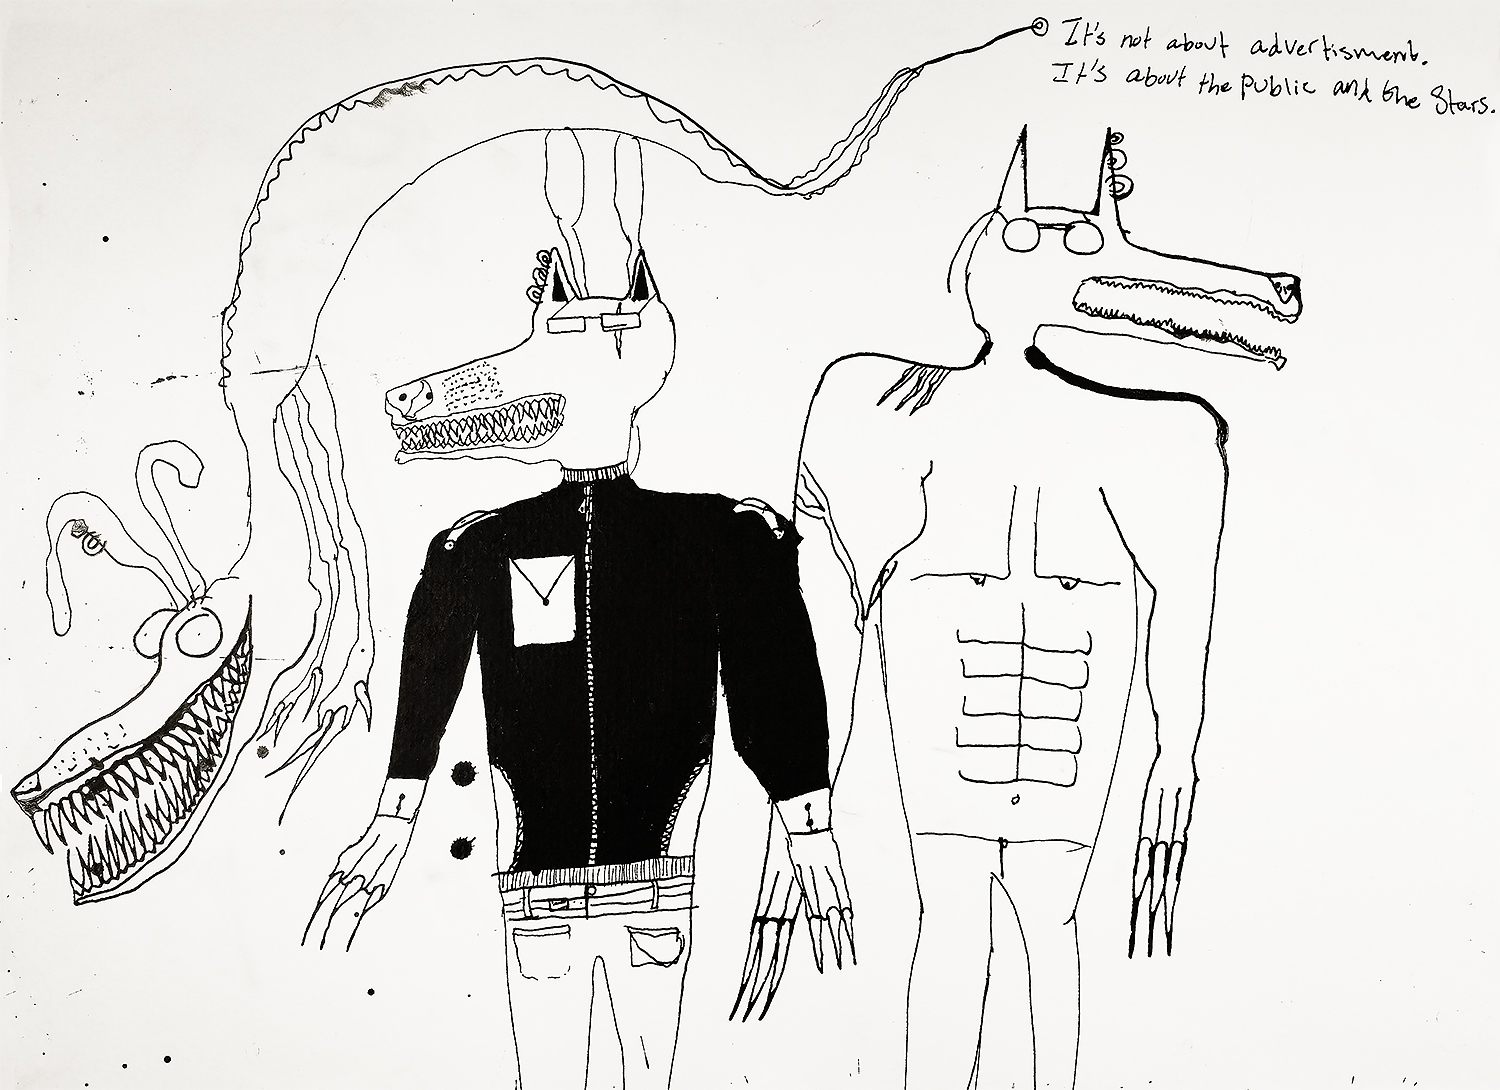 It's not about advertisment.
It's about the public and the Stars.